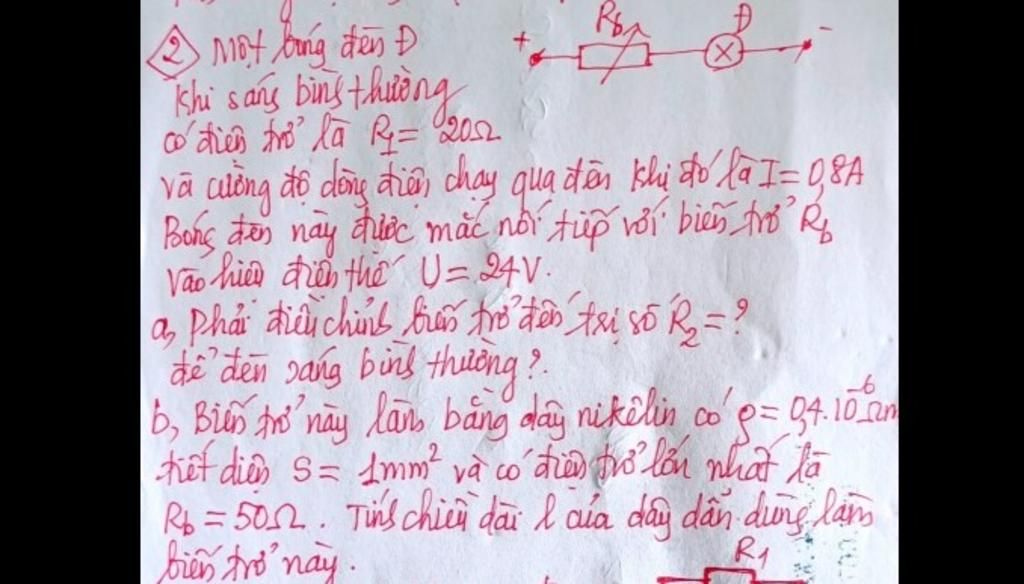 2 Một bóng đèn Đ
Rb Đ
+ -
khi sáng bình thường
có điện trở là R1 = 20Ω
và cường độ dòng điện chạy qua đèn khi đó là I = 0,8A
Bóng đèn này được mắc nối tiếp với biến trở Rb
vào hiệu điện thế U = 24V.
a, Phải điều chỉnh biến trở đến trị số R2 = ?
để đèn sáng bình thường?.
b, Biến trở này làm bằng dây nikêlin có ρ = 0,4.10⁻⁶Ωm
tiết diện S = 1mm² và có điện trở lớn nhất là
Rb = 50Ω. Tính chiều dài l của dây dẫn dùng làm
biến trở này.
R1